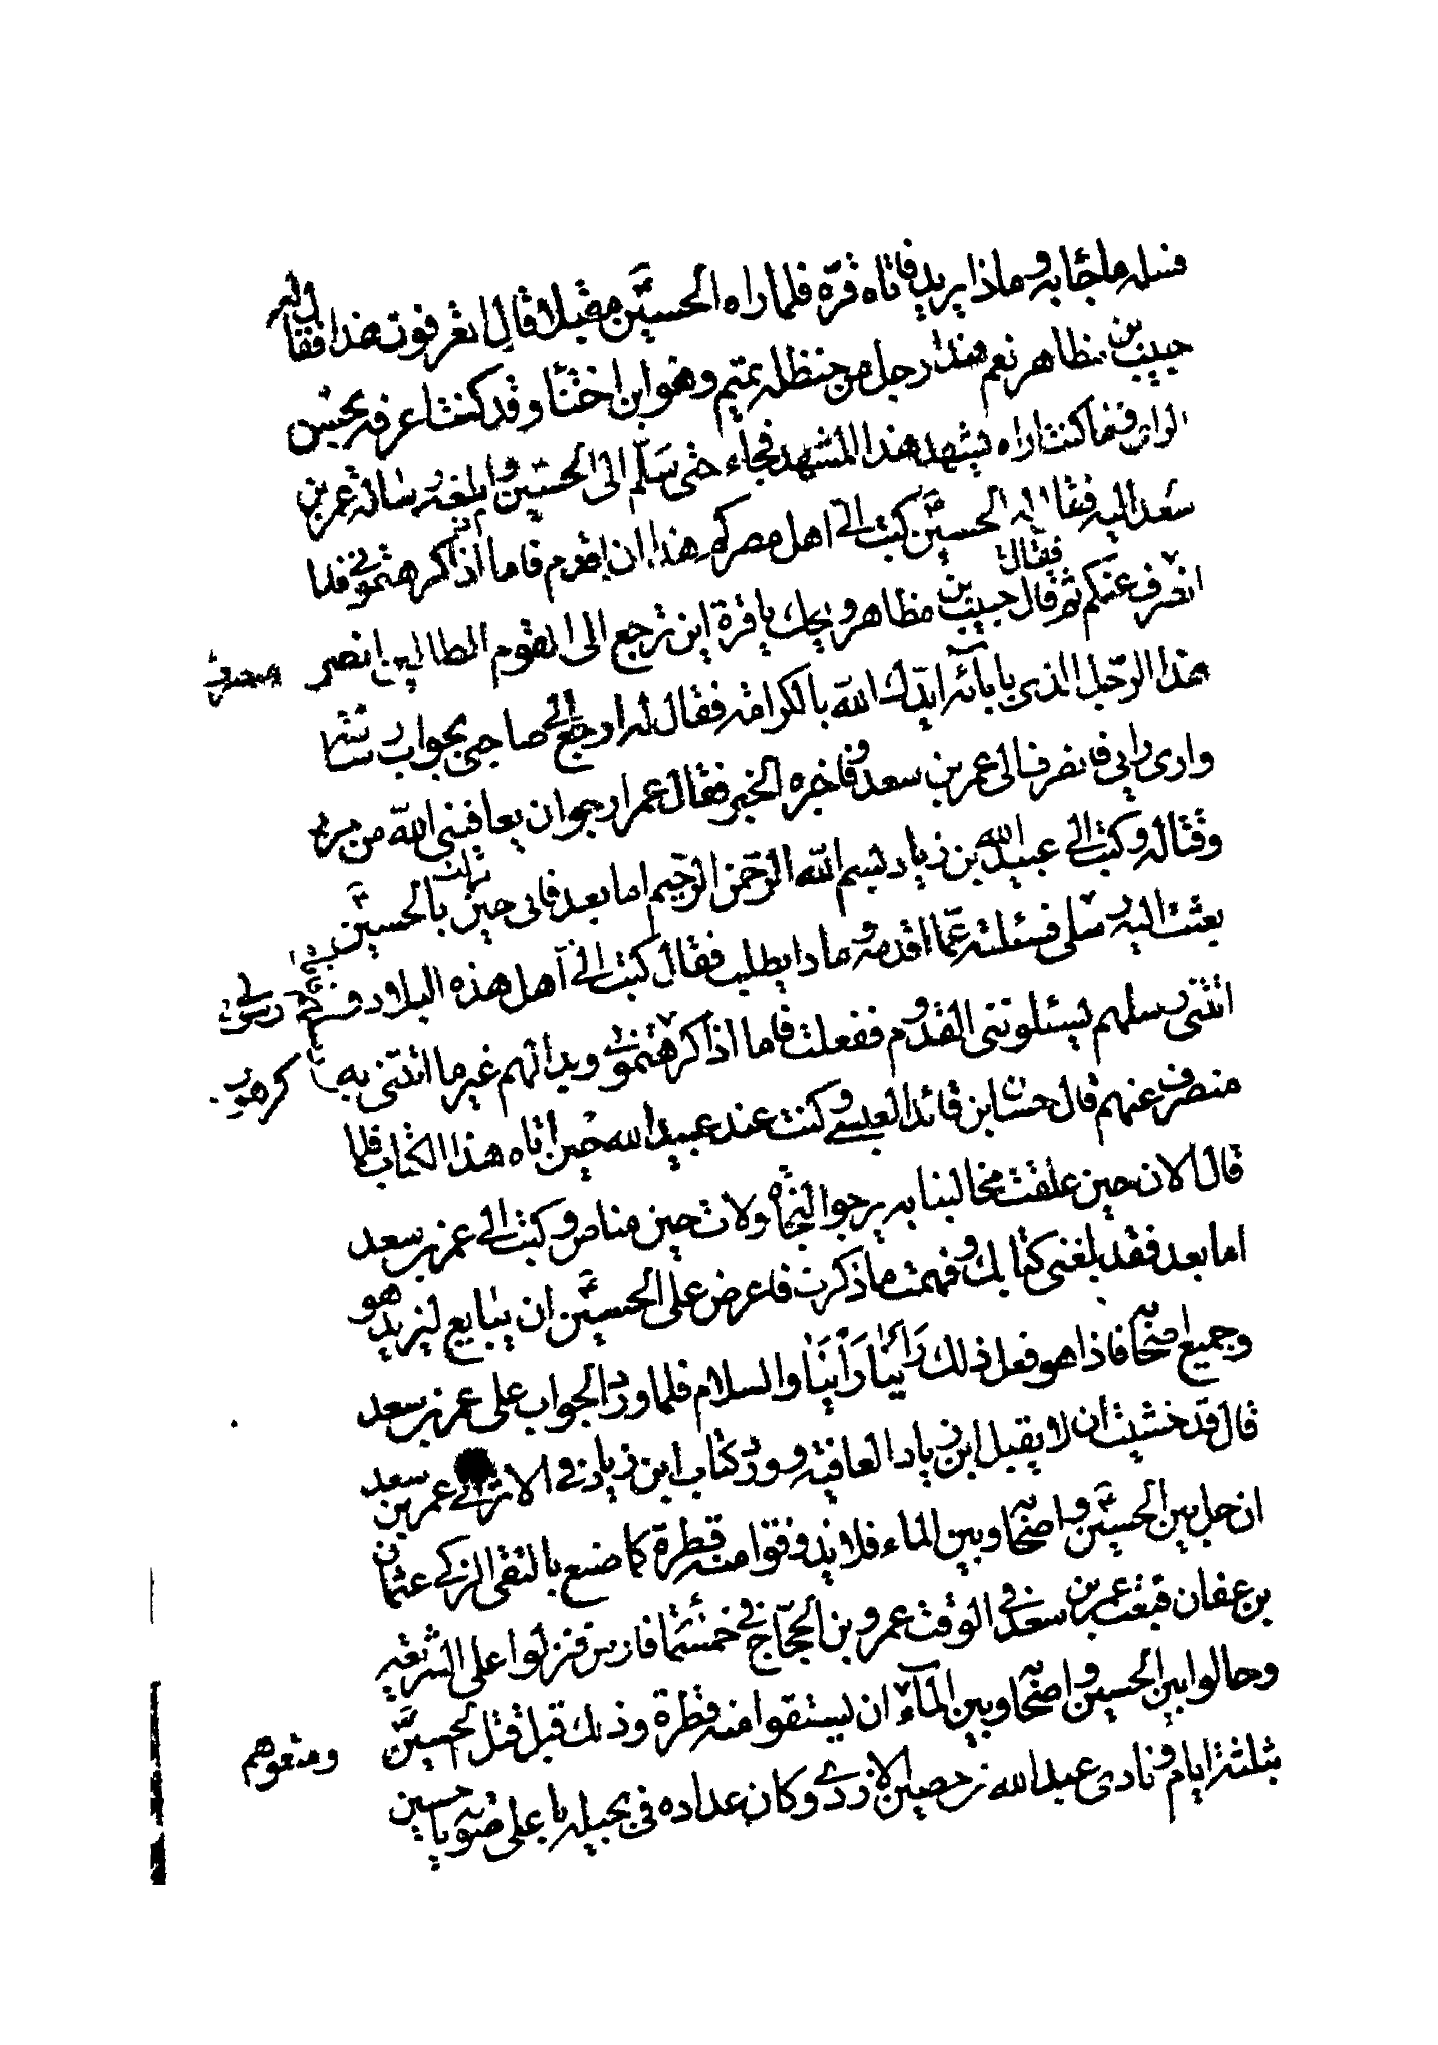 فسله ما جاء به وماذا يريد فاتاه قرة فلما راه الحسين مقبلا قال اتعرفون هذا فقال له
حبيب بن مظاهر نعم هذا رجل من حنظلة تميم وهو ابن اختنا وقد كنت اعرفه بحسن
الراى فما كنت اراه يشهد هذا المشهد فجاء حتى سلم الى الحسين وابلغه رسالة عمر بن
سعد اليه فقال له الحسين كتب الى اهل مصركم هذا ان اقدم فاما اذا كرهتمونى فانا
انصرف عنكم ثم قال حبيب بن مظاهر ويحك يا قرة اين ترجع الى القوم الظالمين انصر
فقال
هذا الرجل الذى بابائه ايدك الله بالكرامة فقال له ارجع الى صاحبى بجواب رسالته
وارى رايى فانصرف الى عمر بن سعد وفاخبره الخبر فقال عمر ارجو ان يعافينى الله من حربه
وقتاله وكتب الى عبيد الله بن زياد بسم الله الرحمن الرحيم اما بعد فانى حين نزلت بالحسين
بعثت اليه رسلى فسئلته عما اقدمه وماذا يطلب فقال كتب الى اهل هذه البلاد و
رسولى
اتتنى رسلهم يسئلوننى القدوم ففعلت فاما اذا كرهتمونى وبدا لهم غير ما اتتنى به
كرهونى
منصرف عنهم قال حسان بن قائد العبسى وكنت عند عبيد الله حين اتاه هذا الكتاب فلما
قال الان حين علقت مخالبنا به يرجوا النجاة ولات حين مناص وكتب الى عمر بن سعد
اما بعد فقد بلغنى كتابك وفهمت ما ذكرت فاعرض على الحسين ان يبايع ليزيد هو
وجميع اصحابه فاذا هو فعل ذلك راينا راينا والسلام فلما ورد الجواب على عمر بن سعد
قال قد خشيت ان لا يقبل ابن زياد العافية وورد كتاب ابن زياد فى الاثر الى عمر بن سعد
ان حل بين الحسين واصحابه وبين الماء فلا يذوقوا منه قطرة كما صنع بالتقى الزكى عثمان
بن عفان فبعث عمر بن سعد فى الوقت عمرو بن الحجاج فى خمسمائة فارس فنزلوا على الشريعة
وحالوا بين الحسين واصحابه وبين الماء ان يستقوا منه قطرة وذلك قبل قتل الحسين
ومنعوهم
بثلثة ايام ونادى عبد الله بن حصين الازدى وكان عداده فى بجيلة با على صوته يا حسين